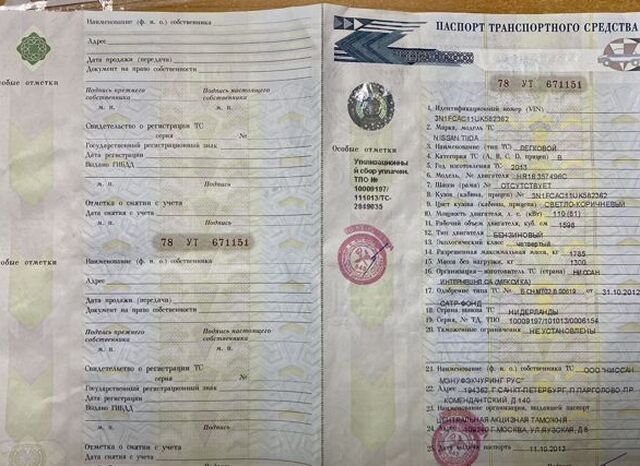 Наименование (ф. и. о.) собственника
Адрес
Дата продажи (передачи)
Документ на право собственности
Особые отметки
Подпись прежнего собственника
Подпись настоящего собственника
м. п.
м. п.
Свидетельство о регистрации ТС
серия
№
Государственный регистрационный знак
Дата регистрации
Выдано ГИБДД
Отметка о снятии с учета
м. п.
Подпись
78 УТ 671151
Наименование (ф. и. о.) собственника
Особые отметки
Адрес
Дата продажи (передачи)
Документ на право собственности
Подпись прежнего собственника
Подпись настоящего собственника
м. п.
м. п.
Свидетельство о регистрации ТС
серия
№
Государственный регистрационный знак
Дата регистрации
Выдано ГИБДД
Отметка о снятии с учета
м. п.
Подпись
ПАСПОРТ ТРАНСПОРТНОГО СРЕДСТВА
78 УТ 671151
Особые отметки
Утилизационны
й сбор уплачен.
ТПО №
10009197/
111013/ТС-
2849035
1. Идентификационный номер (VIN)
3N1FCAC11UK582362
2. Марка, модель ТС
NISSAN TIIDA
3. Наименование (тип ТС) ЛЕГКОВОЙ
4. Категория ТС (А, В, С, D, прицеп) В
5. Год изготовления ТС 2013
6. Модель, № двигателя HR16 357496C
7. Шасси (рама) № ОТСУТСТВУЕТ
8. Кузов (кабина, прицеп) № 3N1FCAC11UK582362
9. Цвет кузова (кабины, прицепа) СВЕТЛО-КОРИЧНЕВЫЙ
10. Мощность двигателя, л. с. (кВт) 110 (81)
11. Рабочий объем двигателя, куб. см 1598
12. Тип двигателя БЕНЗИНОВЫЙ
13. Экологический класс четвертый
14. Разрешенная максимальная масса, кг 1785
15. Масса без нагрузки, кг 1300
16. Организация - изготовитель ТС (страна) НИССАН
(МЕКСИКА)
17. Одобрение типа ТС № от 31.10.2012
САТР-ФОНД
18. Страна вывоза ТС НИДЕРЛАНДЫ
19. Серия, № ТД, ТПО 10009197/101013/0006154
20. Таможенные ограничения НЕ УСТАНОВЛЕНЫ
21. Наименование (ф. и. о.) собственника ТС ООО "НИССАН
МЭНУФЭКЧУРИНГ РУС"
22. Адрес 194362, Г.САНКТ-ПЕТЕРБУРГ, П.ПАРГОЛОВО, ПР.
КОМЕНДАНТСКИЙ, Д.140
23. Наименование организации, выдавшей паспорт
ЦЕНТРАЛЬНАЯ АКЦИЗНАЯ ТАМОЖНЯ
24. Адрес 109240 Г.МОСКВА, УЛ.ЯУЗСКАЯ, Д.8
25. Дата выдачи паспорта